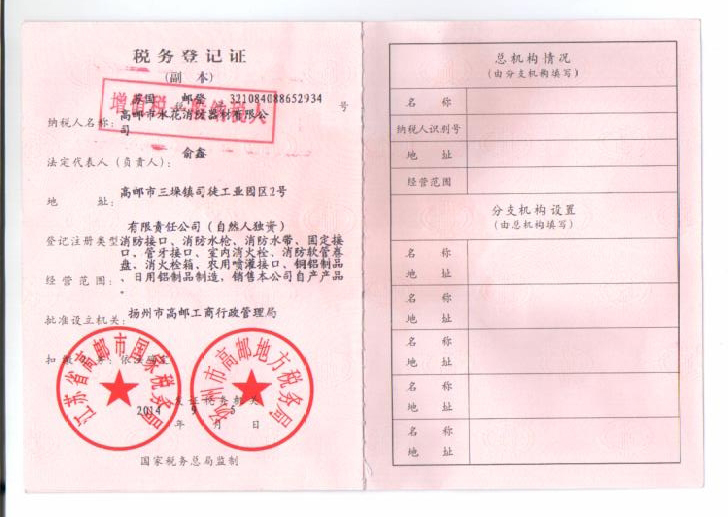 税务登记证
(副 本)
苏国 税 邮登 321084088652934 号
增值税一般纳税人
纳税人名称：高邮市水花消防器材有限公
司
法定代表人(负责人)： 俞鑫
地 址： 高邮市三垛镇司徒工业园区2号
有限责任公司(自然人独资)
登记注册类型 消防接口、消防水枪、消防水带、固定接
口、管牙接口、室内消火栓、消防软管卷
盘、消火栓箱、农用喷灌接口、铜铝制品
经营范围： 、日用铝制品制造，销售本公司自产产品
。
批准设立机关： 扬州市高邮工商行政管理局
扣缴义务： 依法确定
江苏省高邮市国家税务局
扬州市高邮地方税务局
发证税务机关
2014 9 5
年 月 日
国家税务总局监制
总机构情况
(由分支机构填写)
名 称
纳税人识别号
地 址
经营范围
分支机构设置
(由总机构填写)
名 称
地 址
名 称
地 址
名 称
地 址
名 称
地 址
名 称
地 址